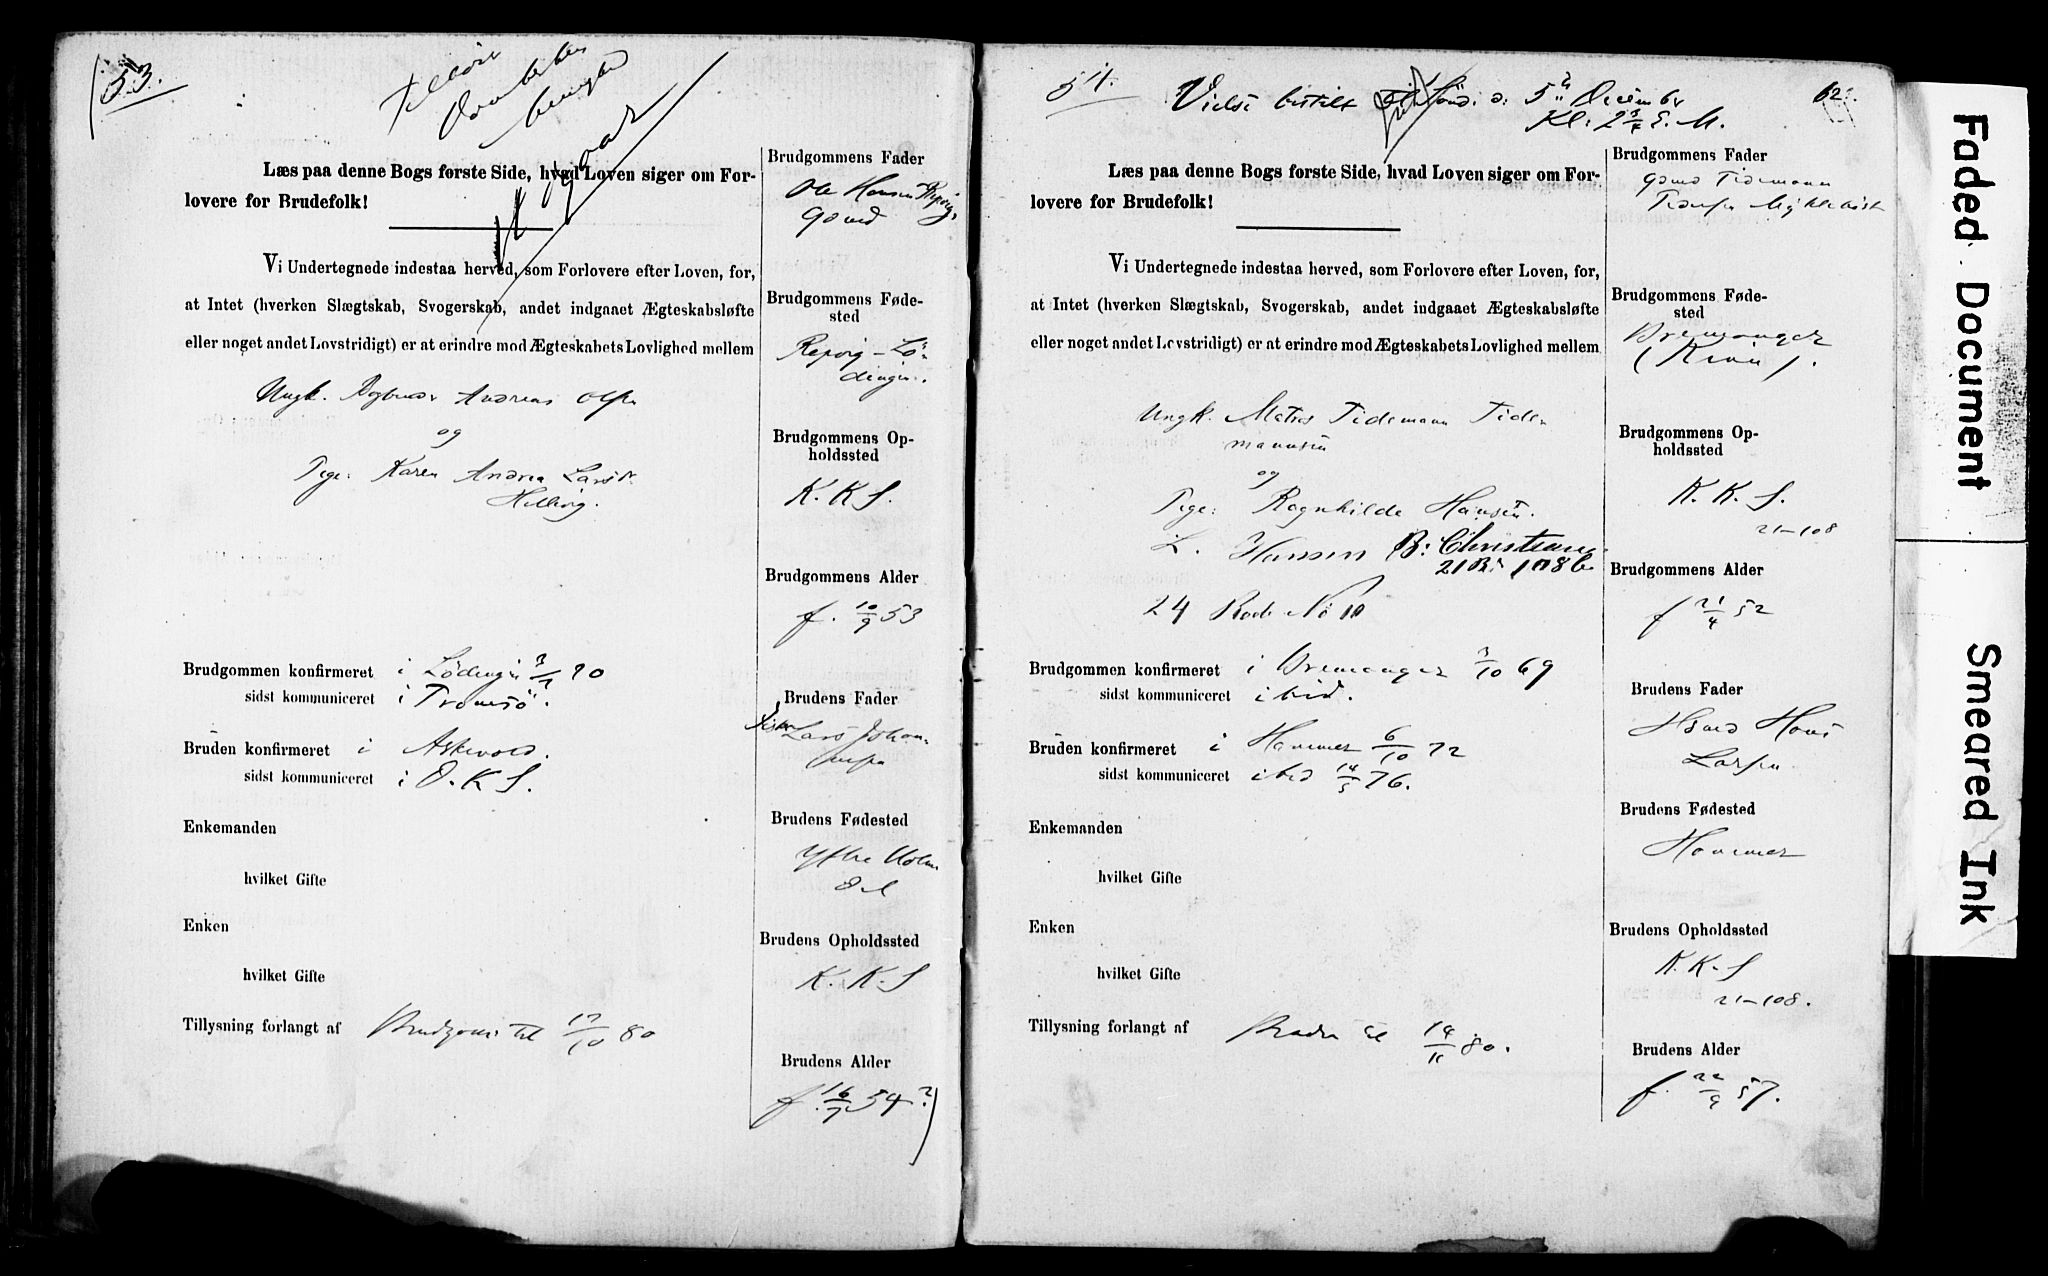 53.
Læs paa denne Bogs første Side, hvad Loven siger om For-
lovere for Brudefolk!
Vi Undertegnede indestaa herved, som Forlovere efter Loven, for,
at Intet (hverken Slægtskab, Svogerskab, andet indgaaet Ægteskabsløfte
eller noget andet Lovstridigt) er at erindre mod Ægteskabets Lovlighed mellem
Ungk. Andreas Olsen
og
Pige: Karen Andrea Larsd.
Hellevig.
Brudgommen konfirmeret i Lødingen 70
sidst kommuniceret i Tromsö.
Bruden konfirmeret i Askevold.
sidst kommuniceret i D. K. S.
Enkemanden
hvilket Gifte
Enken
hvilket Gifte
Tillysning forlangt af Brudgom. til 17/10 80
Brudgommens Fader
Ole Hansen Repvig,
Gamd
Brudgommens Føde-
sted
Repvig - Lö-
dingen.
Brudgommens Op-
holdssted
K. K. S.
Brudgommens Alder
f. 10/9 53
Brudens Fader
Lars Johan-
nesen
Brudens Fødested
Ytre Holme-
dal
Brudens Opholdssted
K. K. S
Brudens Alder
f. 16/7 54?)
54.
Vielse bestilt Sönd. d: 5te December
Kl: 2 3/4 E. M.
62.
Læs paa denne Bogs første Side, hvad Loven siger om For-
lovere for Brudefolk!
Vi Undertegnede indestaa herved, som Forlovere efter Loven, for,
at Intet (hverken Slægtskab, Svogerskab, andet indgaaet Ægteskabsløfte
eller noget andet Lovstridigt) er at erindre mod Ægteskabets Lovlighed mellem
Ungk. Matros Tidemann Tide-
mannsen
og
Pige: Ragnhilde Hansen.
L. Hansen B: Christians
21 R: 108 b
24 Rode No 10
Brudgommen konfirmeret i Bremanger 3/10 69
sidst kommuniceret i bid.
Bruden konfirmeret i Hammer 6/10 72
sidst kommuniceret ibid 14/5 76.
Enkemanden
hvilket Gifte
Enken
hvilket Gifte
Tillysning forlangt af Bruden til 14/11 80.
Brudgommens Fader
Gamd Tidemann
Tidemsen Myklebust
Brudgommens Føde-
sted
Bremanger
(Kinn).
Brudgommens Op-
holdssted
K. K. S.
21-108
Brudgommens Alder
f 21/4 52
Brudens Fader
Hsmd Hans
Larsen
Brudens Fødested
Hammer
Brudens Opholdssted
K. K. S
21-108.
Brudens Alder
f. 22/9 57.
Faded Document
Smeared Ink